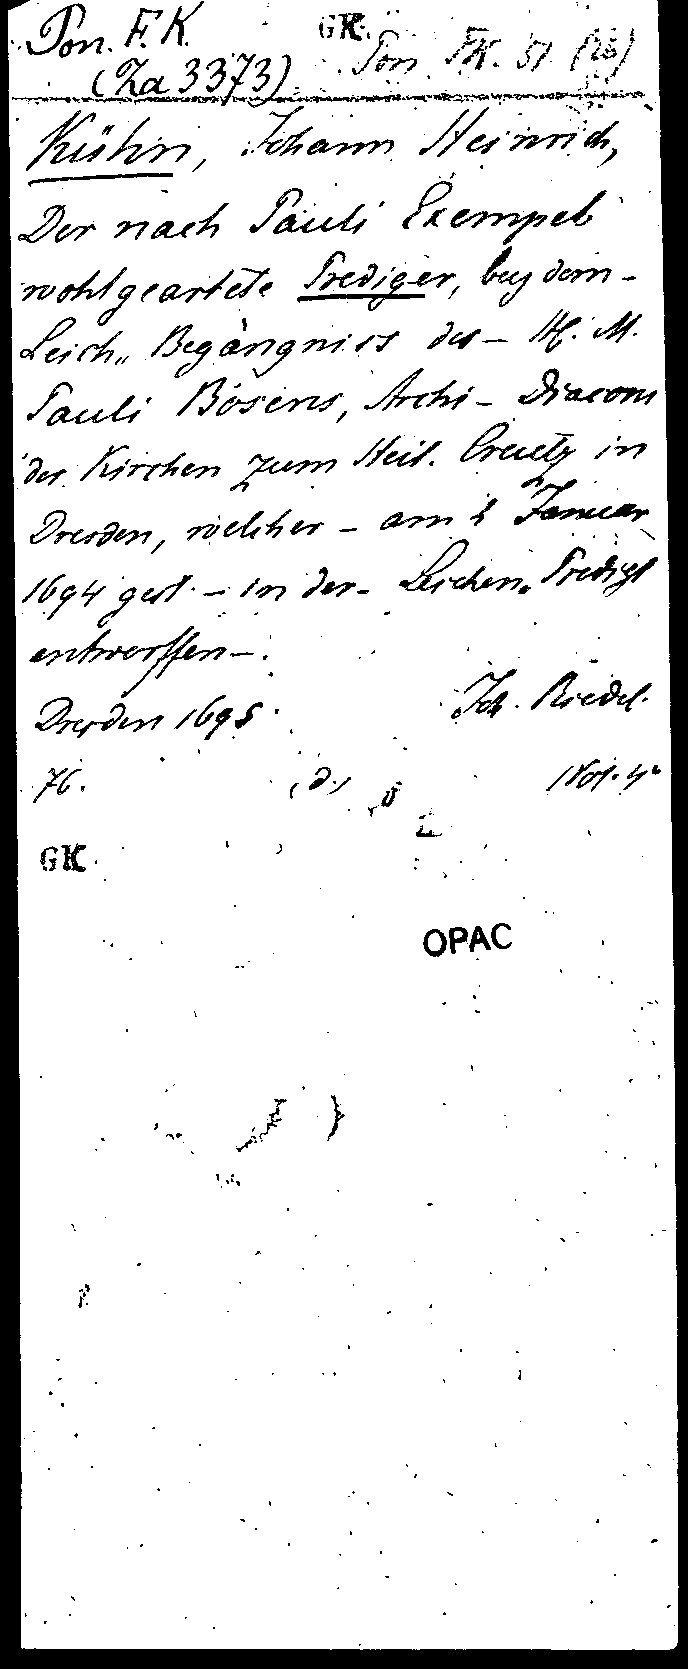 Pon. F. K. GK.
(Za 3373) Pon FK. 51
Kühn, Johann Heinrich,
Der nach Pauli Exempel
wohlgeartete Prediger, bey dem –
Leich„ Begängniss des – H. M.
Pauli Bösens, Archi – Diaconi
der Kirchen zum Heil. Creutz in
Dresden, welcher – am 2 Januar
1694 gest. – in der – Leichen„ Predigt
entworffen –.
Dresden 1695 Joh. Riedel.
76. (d)
GK.
OPAC